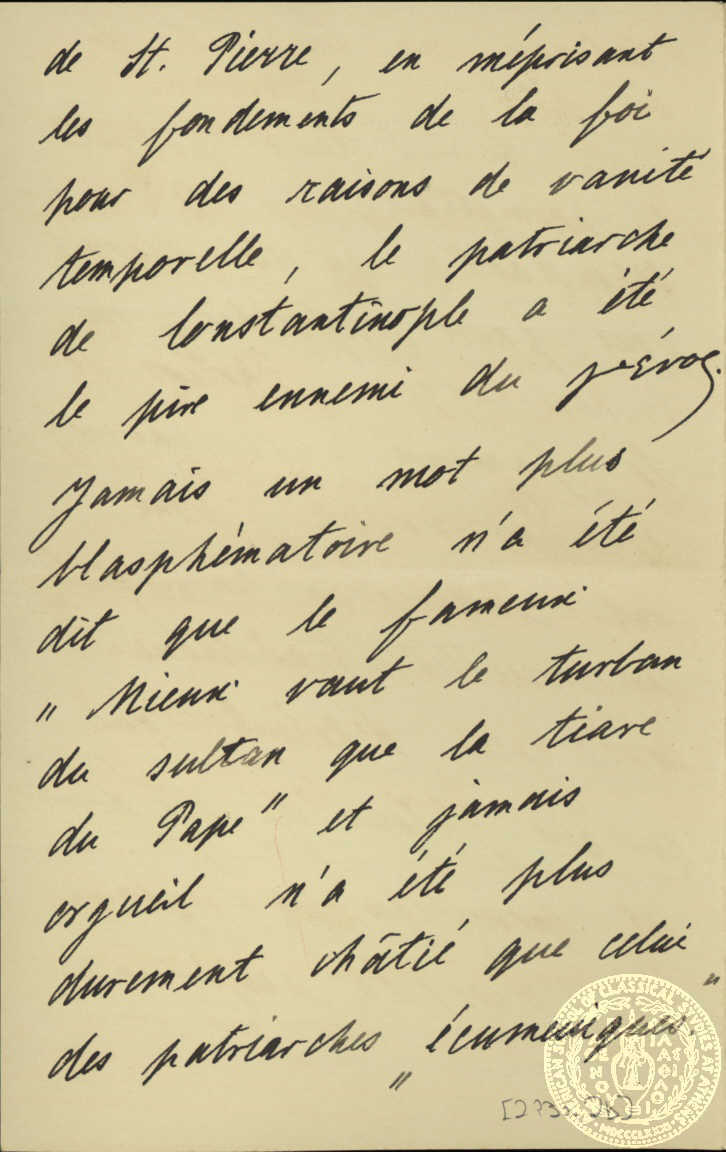 de St. Pierre, en méprisant
les fondements de la foi
pour des raisons de vanité
temporelle, le patriarche
de Constantinople a été
le pire ennemi du γένος.
Jamais un mot plus
blasphématoire n'a été
dit que le fameux
„ Mieux vaut le turban
du sultan que la tiare
du Pape" et jamais
orgueil n'a été plus
durement châtié que celui
des patriarches „écumeniques."